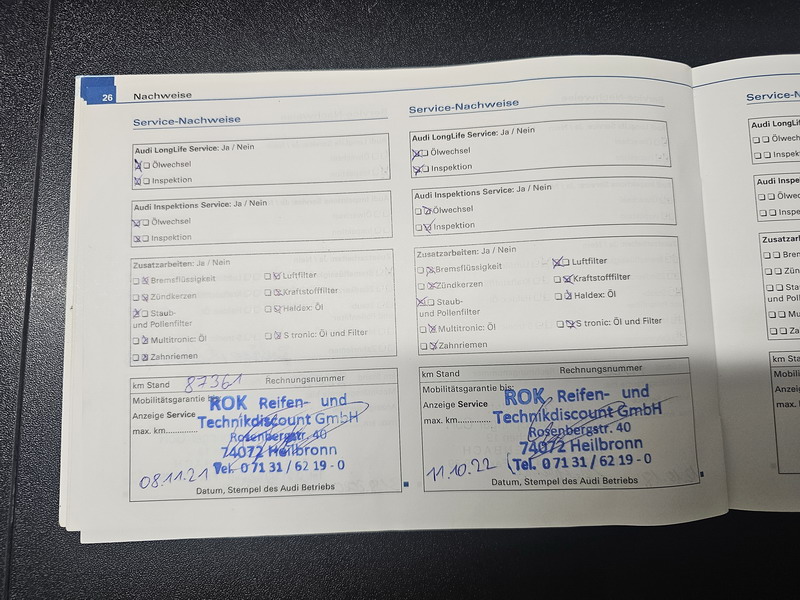 26 Nachweise
Service-Nachweise
Audi LongLife Service: Ja / Nein
Ölwechsel
Inspektion
Audi Inspektions Service: Ja / Nein
Ölwechsel
Inspektion
Zusatzarbeiten: Ja / Nein
Bremsflüssigkeit Luftfilter
Zündkerzen Kraftstofffilter
Staub- Haldex: Öl
und Pollenfilter
Multitronic: Öl S tronic: Öl und Filter
Zahnriemen
km Stand 87361 Rechnungsnummer
Mobilitätsgarantie
Anzeige Service
max. km
ROK Reifen- und
Technikdiscount GmbH
Rosenbergstr. 40
74072 Heilbronn
Tel. 0 71 31 / 62 19 - 0
08.11.21
Datum, Stempel des Audi Betriebs
Service-Nachweise
Audi LongLife Service: Ja / Nein
Ölwechsel
Inspektion
Audi Inspektions Service: Ja / Nein
Ölwechsel
Inspektion
Zusatzarbeiten: Ja / Nein
Bremsflüssigkeit Luftfilter
Zündkerzen Kraftstofffilter
Staub- Haldex: Öl
und Pollenfilter
Multitronic: Öl S tronic: Öl und Filter
Zahnriemen
km Stand Rechnungsnummer
Mobilitätsgarantie bis:
Anzeige Service
max. km
ROK Reifen- und
Technikdiscount GmbH
Rosenbergstr. 40
74072 Heilbronn
Tel. 0 71 31 / 62 19 - 0
11.10.22
Datum, Stempel des Audi Betriebs
Service-N
Audi LongL
Ölwechs
Inspekti
Audi Inspe
Ölwechs
Inspekti
Zusatzarb
Brem
Zünd
Stau
und Poll
Mu
Za
km Stan
Mobilitä
Anzeige
max. km